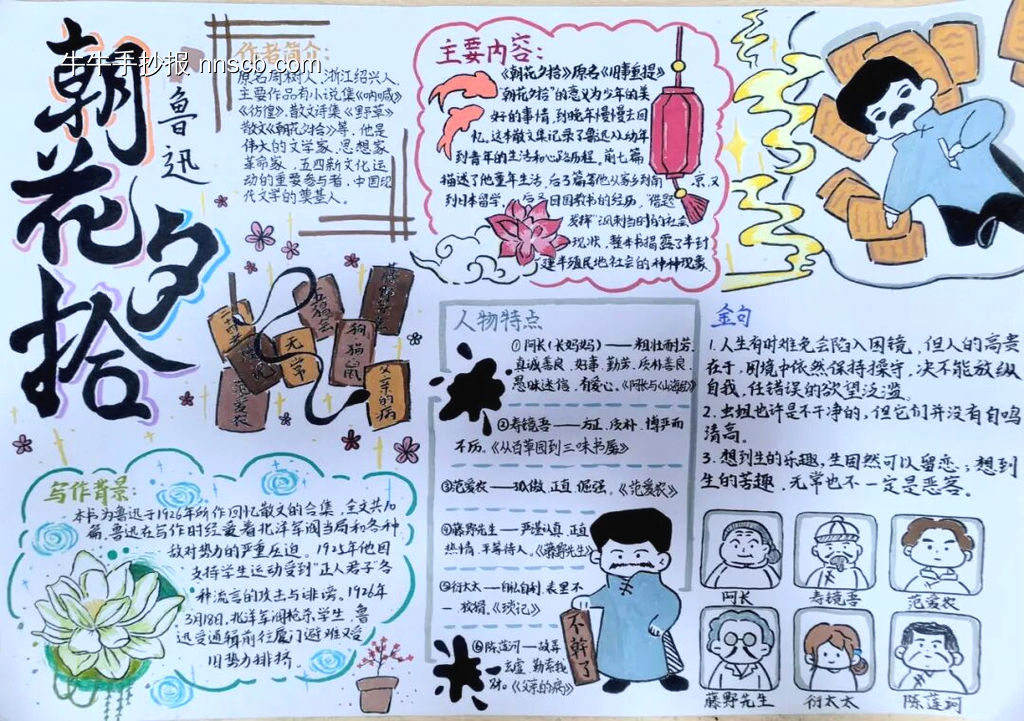 朝花夕拾
鲁迅
牛牛手抄报 nnscb.com
作者简介:
原名周树人,浙江绍兴人,
主要作品有小说集《呐喊》
《彷徨》,散文诗集《野草》
散文《朝花夕拾》等,他是
伟大的文学家、思想家
革命家,五四新文化运
动的重要参与者,中国现
代文学的奠基人。
主要内容:
《朝花夕拾》原名《旧事重提》
"朝花夕拾"的意义为少年的美
好的事情,到晚年慢慢去回
忆。这本散文集记录了鲁迅从幼年
到青年的生活和心路历程。前七篇
描述了他童年生活,后3篇写他从家乡到南京,又
到日本留学,
回国教书的经历,借题
发挥"讽刺当时的社会
现状,整本书揭露了半封
建半殖民地社会的种种现象
二十四孝图
五猖会
无常
狗猫鼠
范爱农
父亲的病
写作背景:
本书为鲁迅于1926年所作回忆散文的合集,全文共10
篇,鲁迅在写作时经受着北洋军阀当局和各种
敌对势力的严重压迫。1925年他因
支持学生运动受到"正人君子"各
种流言的攻击与诽谤。1926年
3月18日,北洋军阀枪杀学生,鲁
迅受通缉前往厦门避难又受
旧势力排挤。
人物特点
①阿长(长妈妈)——粗壮耐劳,
真诚善良、好事、勤劳、质朴善良、
愚昧迷信,有爱心。《阿长与山海经》
②寿镜吾——方正、质朴、博学而
不厉。《从百草园到三味书屋》
③范爱农——孤傲、正直、倔强。《范爱农》
④藤野先生——严谨认真、正直
热情、平等待人。《藤野先生》
⑤衍太太——自私自利、表里不
一、狡猾。《琐记》
⑥陈莲河——故弄
玄虚,勒索钱
财。《父亲的病》
不幹了
金句
1.人生有时难免会陷入困镜,但人的高贵
在于,困境中依然保持操守,决不能放纵
自我,任错误的欲望泛滥。
2.虫蛆也许是不干净的,但它们并没有自鸣
清高。
3.想到生的乐趣,生固然可以留恋;想到
生的苦趣,无常也不一定是恶客。
阿长
寿镜吾
范爱农
藤野先生
衍太太
陈莲珂